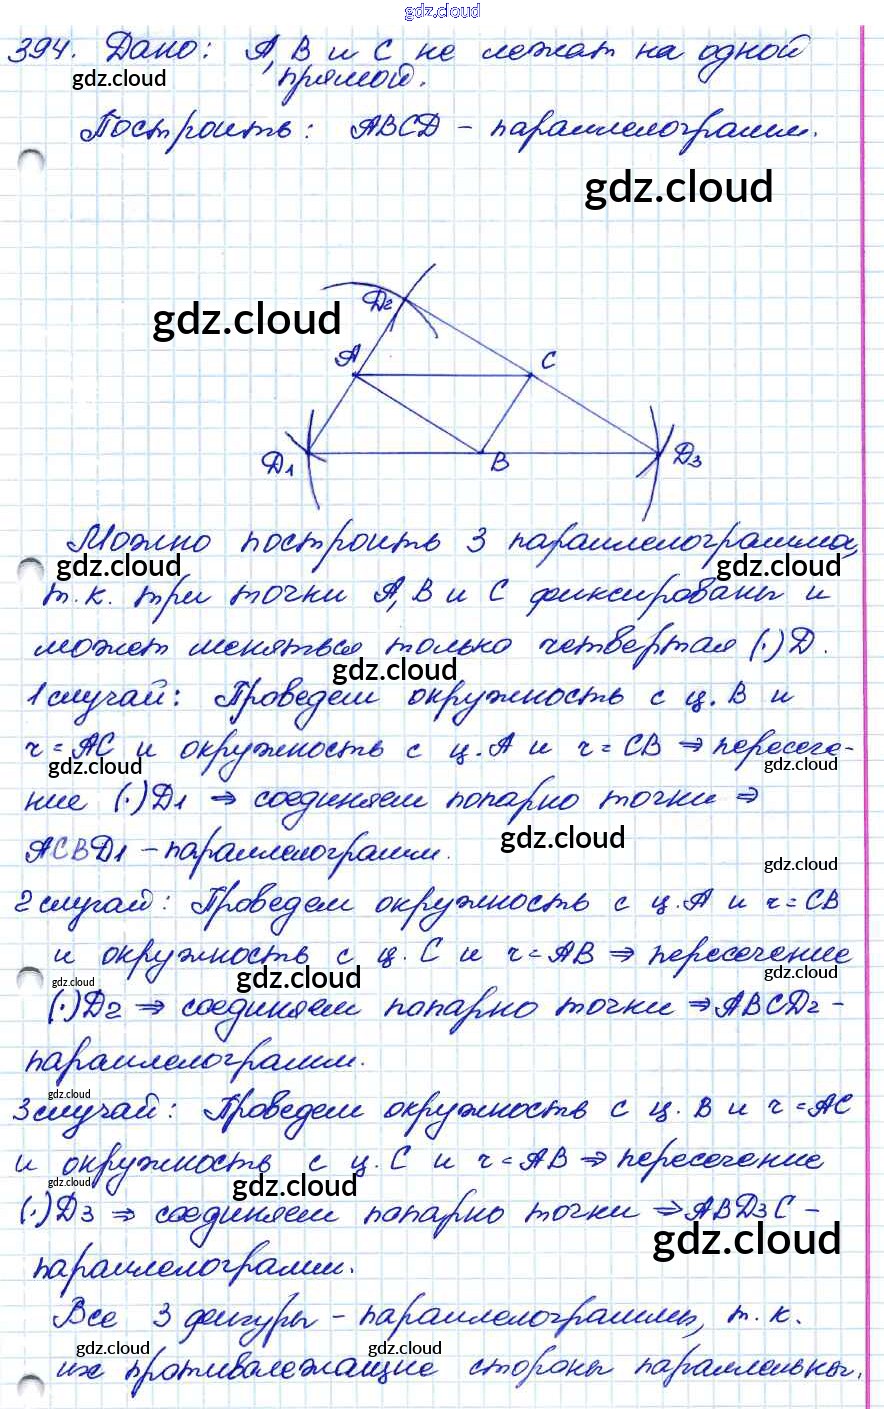 gdz.cloud
394. Дано: А, В и С не лежат на одной
gdz.cloud
прямой.
Построить: ABCD - параллелограмм.
gdz.cloud
D2
gdz.cloud
A
C
D1
B
D3
Можно построить 3 параллелограмма,
gdz.cloud gdz.cloud
т.к. три точки А, В и С фиксированы и
может меняться только четвертая (·) D.
gdz.cloud
1 случай: Проведем окружность с ц. В и
r = AC и окружность с ц. А и r = CB ⇒ пересече-
gdz.cloud gdz.cloud
ние (·) D1 ⇒ соединяем попарно точки ⇒
gdz.cloud
ACBD1 - параллелограмм.
gdz.cloud
2 случай: Проведем окружность с ц. А и r = CB
и окружность с ц. С и r = AB ⇒ пересечение
gdz.cloud gdz.cloud gdz.cloud
(·) D2 ⇒ соединяем попарно точки ⇒ ABCD2 -
параллелограмм.
gdz.cloud
3 случай: Проведем окружность с ц. В и r = AC
и окружность с ц. С и r = AB ⇒ пересечение
gdz.cloud gdz.cloud
(·) D3 ⇒ соединяем попарно точки ⇒ ABD3C -
gdz.cloud
параллелограмм.
Все 3 фигуры - параллелограммы, т.к.
gdz.cloud gdz.cloud gdz.cloud
их противолежащие стороны параллельны.